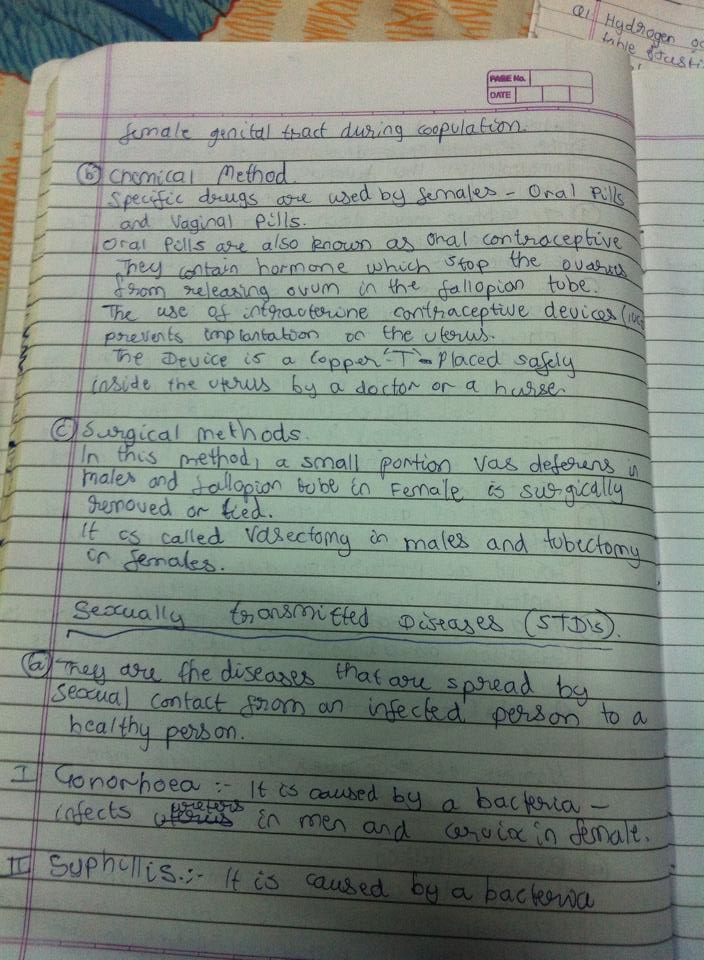 Q1 Hydrogen
table
PAGE No.
DATE
female genital tract during coopulation.
(b) Chemical Method
Specific drugs are used by females - Oral Pills
and Vaginal Pills.
Oral Pills are also known as Oral contraceptive
They contain hormone which stop the ovaries
from releasing ovum in the fallopion tube.
The use of intracterine contraceptive devices
prevents implantation on the uterus.
The Device is a Copper 'T' - Placed safely
inside the uterus by a doctor or a nurse.
(c) Surgical methods.
In this method, a small portion Vas deferens in
males and fallopion tube in Female is surgically
removed or tied.
It is called Vasectomy in males and tubectomy
in females.
Sexually transmitted Diseases (STD's).
(a) They are the diseases that are spread by
sexual contact from an infected person to a
healthy person.
I Gonorhoea :- It is caused by a bacteria -
infects in men and cervix in female.
II Syphillis.:- It is caused by a bacteria